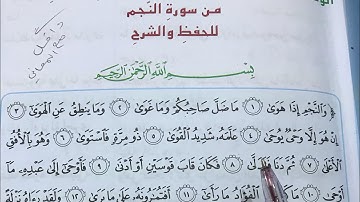 من سورة النجم
للحفظ والشرح
بِسْمِ اللَّهِ الرَّحْمَٰنِ الرَّحِيمِ
﴿ وَالنَّجْمِ إِذَا هَوَىٰ ١ مَا ضَلَّ صَاحِبُكُمْ وَمَا غَوَىٰ ٢ وَمَا يَنطِقُ عَنِ الْهَوَىٰ ٣
إِنْ هُوَ إِلَّا وَحْيٌ يُوحَىٰ ٤ عَلَّمَهُ شَدِيدُ الْقُوَىٰ ٥ ذُو مِرَّةٍ فَاسْتَوَىٰ ٦ وَهُوَ بِالْأُفُقِ
الْأَعْلَىٰ ٧ ثُمَّ دَنَا فَتَدَلَّىٰ ٨ فَكَانَ قَابَ قَوْسَيْنِ أَوْ أَدْنَىٰ ٩ فَأَوْحَىٰ إِلَىٰ عَبْدِهِ مَا
أَوْحَىٰ ١٠ مَا الْفُؤَادُ مَا رَأَىٰ ١١ أَفَتُمَارُونَهُ عَلَىٰ مَا يَرَىٰ ١٢ وَلَقَدْ رَآهُ نَزْلَةً